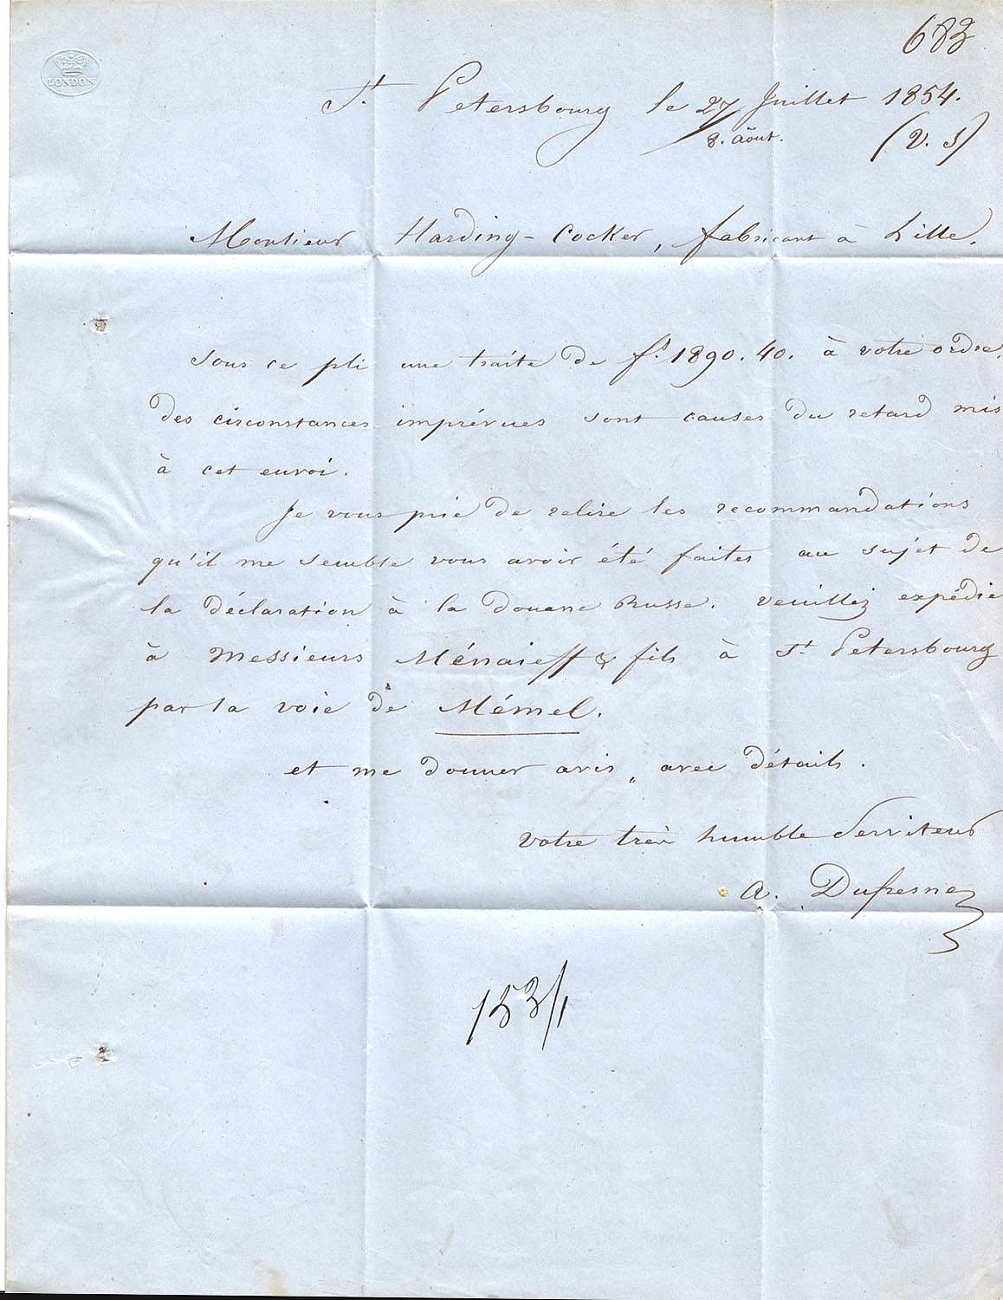 683
LONDON
St Petersbourg le 27 Juillet 1854.
8. aôut. (v. s)
Monsieur Harding-Cocker, fabricant à Lille.
Sous ce pli une traite de fs. 1890. 40. à votre ordre.
des circonstances imprévues sont causes du retard mis
à cet envoi.
Je vous prie de relire les recommandations
qu'il me semble vous avoir été faites au sujet de
la déclaration à la douane Russe. Veuillez expédie
à Messieurs Ménaieff & fils à St Petersbourg
par la voie de Mémel.
et me donner avis, avec détails.
Votre très humble Serviteur
A. Dufresne
153/1